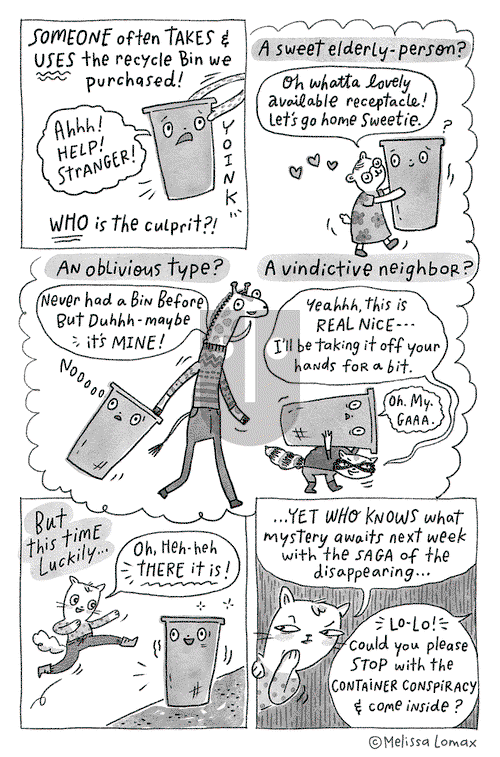 SOMEONE often TAKES &
USES the recycle Bin we
purchased!
Ahhh!
HELP!
STRANGER!
YOINK
WHO is the culprit?!
A sweet elderly-person?
Oh whatta lovely
available receptacle!
Let's go home Sweetie.
?
An oblivious type?
Never had a Bin Before
But Duhhh-maybe
it's MINE!
Noooo
A vindictive neighbor?
Yeahhh, this is
REAL NICE---
I'll be taking it off your
hands for a bit.
Oh. My.
GAAA.
But
this time
Luckily...
Oh, Heh-heh
THERE it is!
...YET WHO KNOWS what
mystery awaits next week
with the SAGA of the
disappearing...
LO-LO!
Could you please
STOP with the
CONTAINER CONSPIRACY
& come inside?
©Melissa Lomax